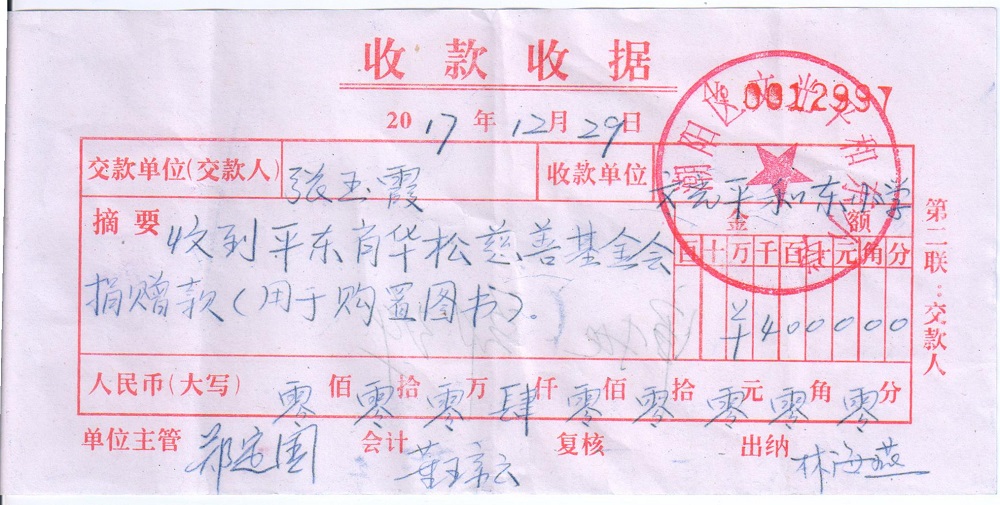 收款收据
0012997
2017年12月29日
交款单位(交款人) 张玉霞 收款单位 文光平和东小学
摘要 收到平东肖华松慈善基金会
捐赠款(用于购置图书)。
金额
百十万千百十元角分
¥400000
人民币(大写) 零佰零拾零万肆仟零佰零拾零元零角零分
单位主管 郑定国 会计 复核 出纳 林海燕
第二联:交款人